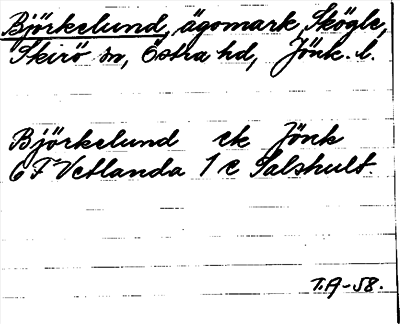 Björkelund, ägomark, Skögle,
Skirö sn, Östra hd, Jönk. l.
Björkelund ek Jönk
6 F Vetlanda 1 c Salshult.
T.A-58.